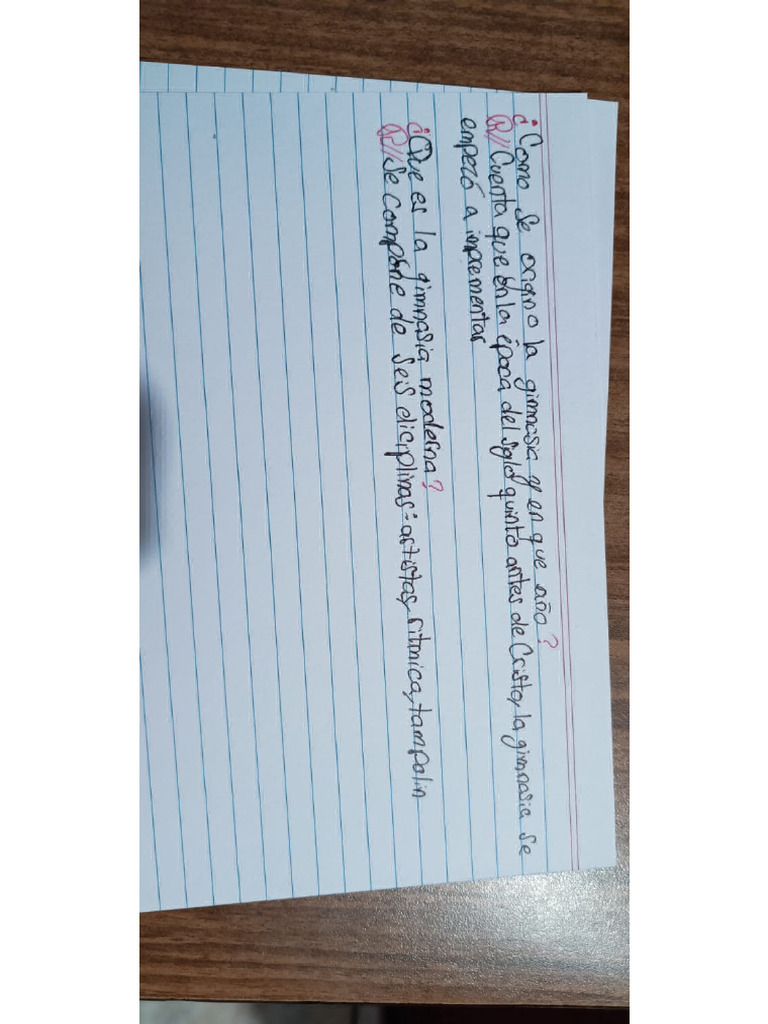 ¿Como se origino la gimnasia y en que año?
R// Cuenta que en la época del siglo quinto antes de Cristo, la gimnasia se
empezó a imprementar
¿Que es la gimnasia moderna?
R// Se compone de seis diciplinas: artistas, ritmica, tampolin